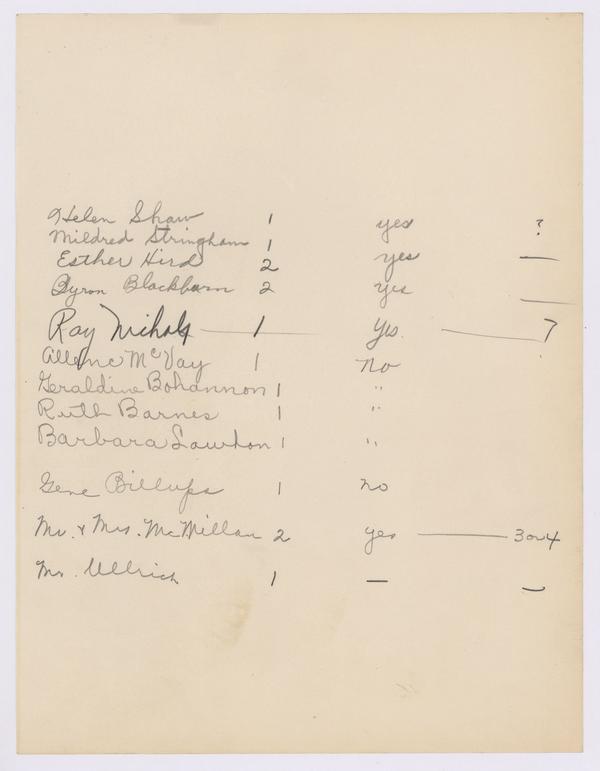 Helen Shaw 1 yes ?
Mildred Stringham 1 yes —
Esther Hird 2 yes
Byron Blackburn 2 yes —
Ray Nichols — 1 yes. — 7
Allene McVay 1 no
Geraldine Bohannon 1 "
Ruth Barnes 1 "
Barbara Lawhon 1 "
Gene Billups 1 no
Mr. & Mrs. McMillan 2 yes — 3 or 4
Mr. Ullrich 1 — —